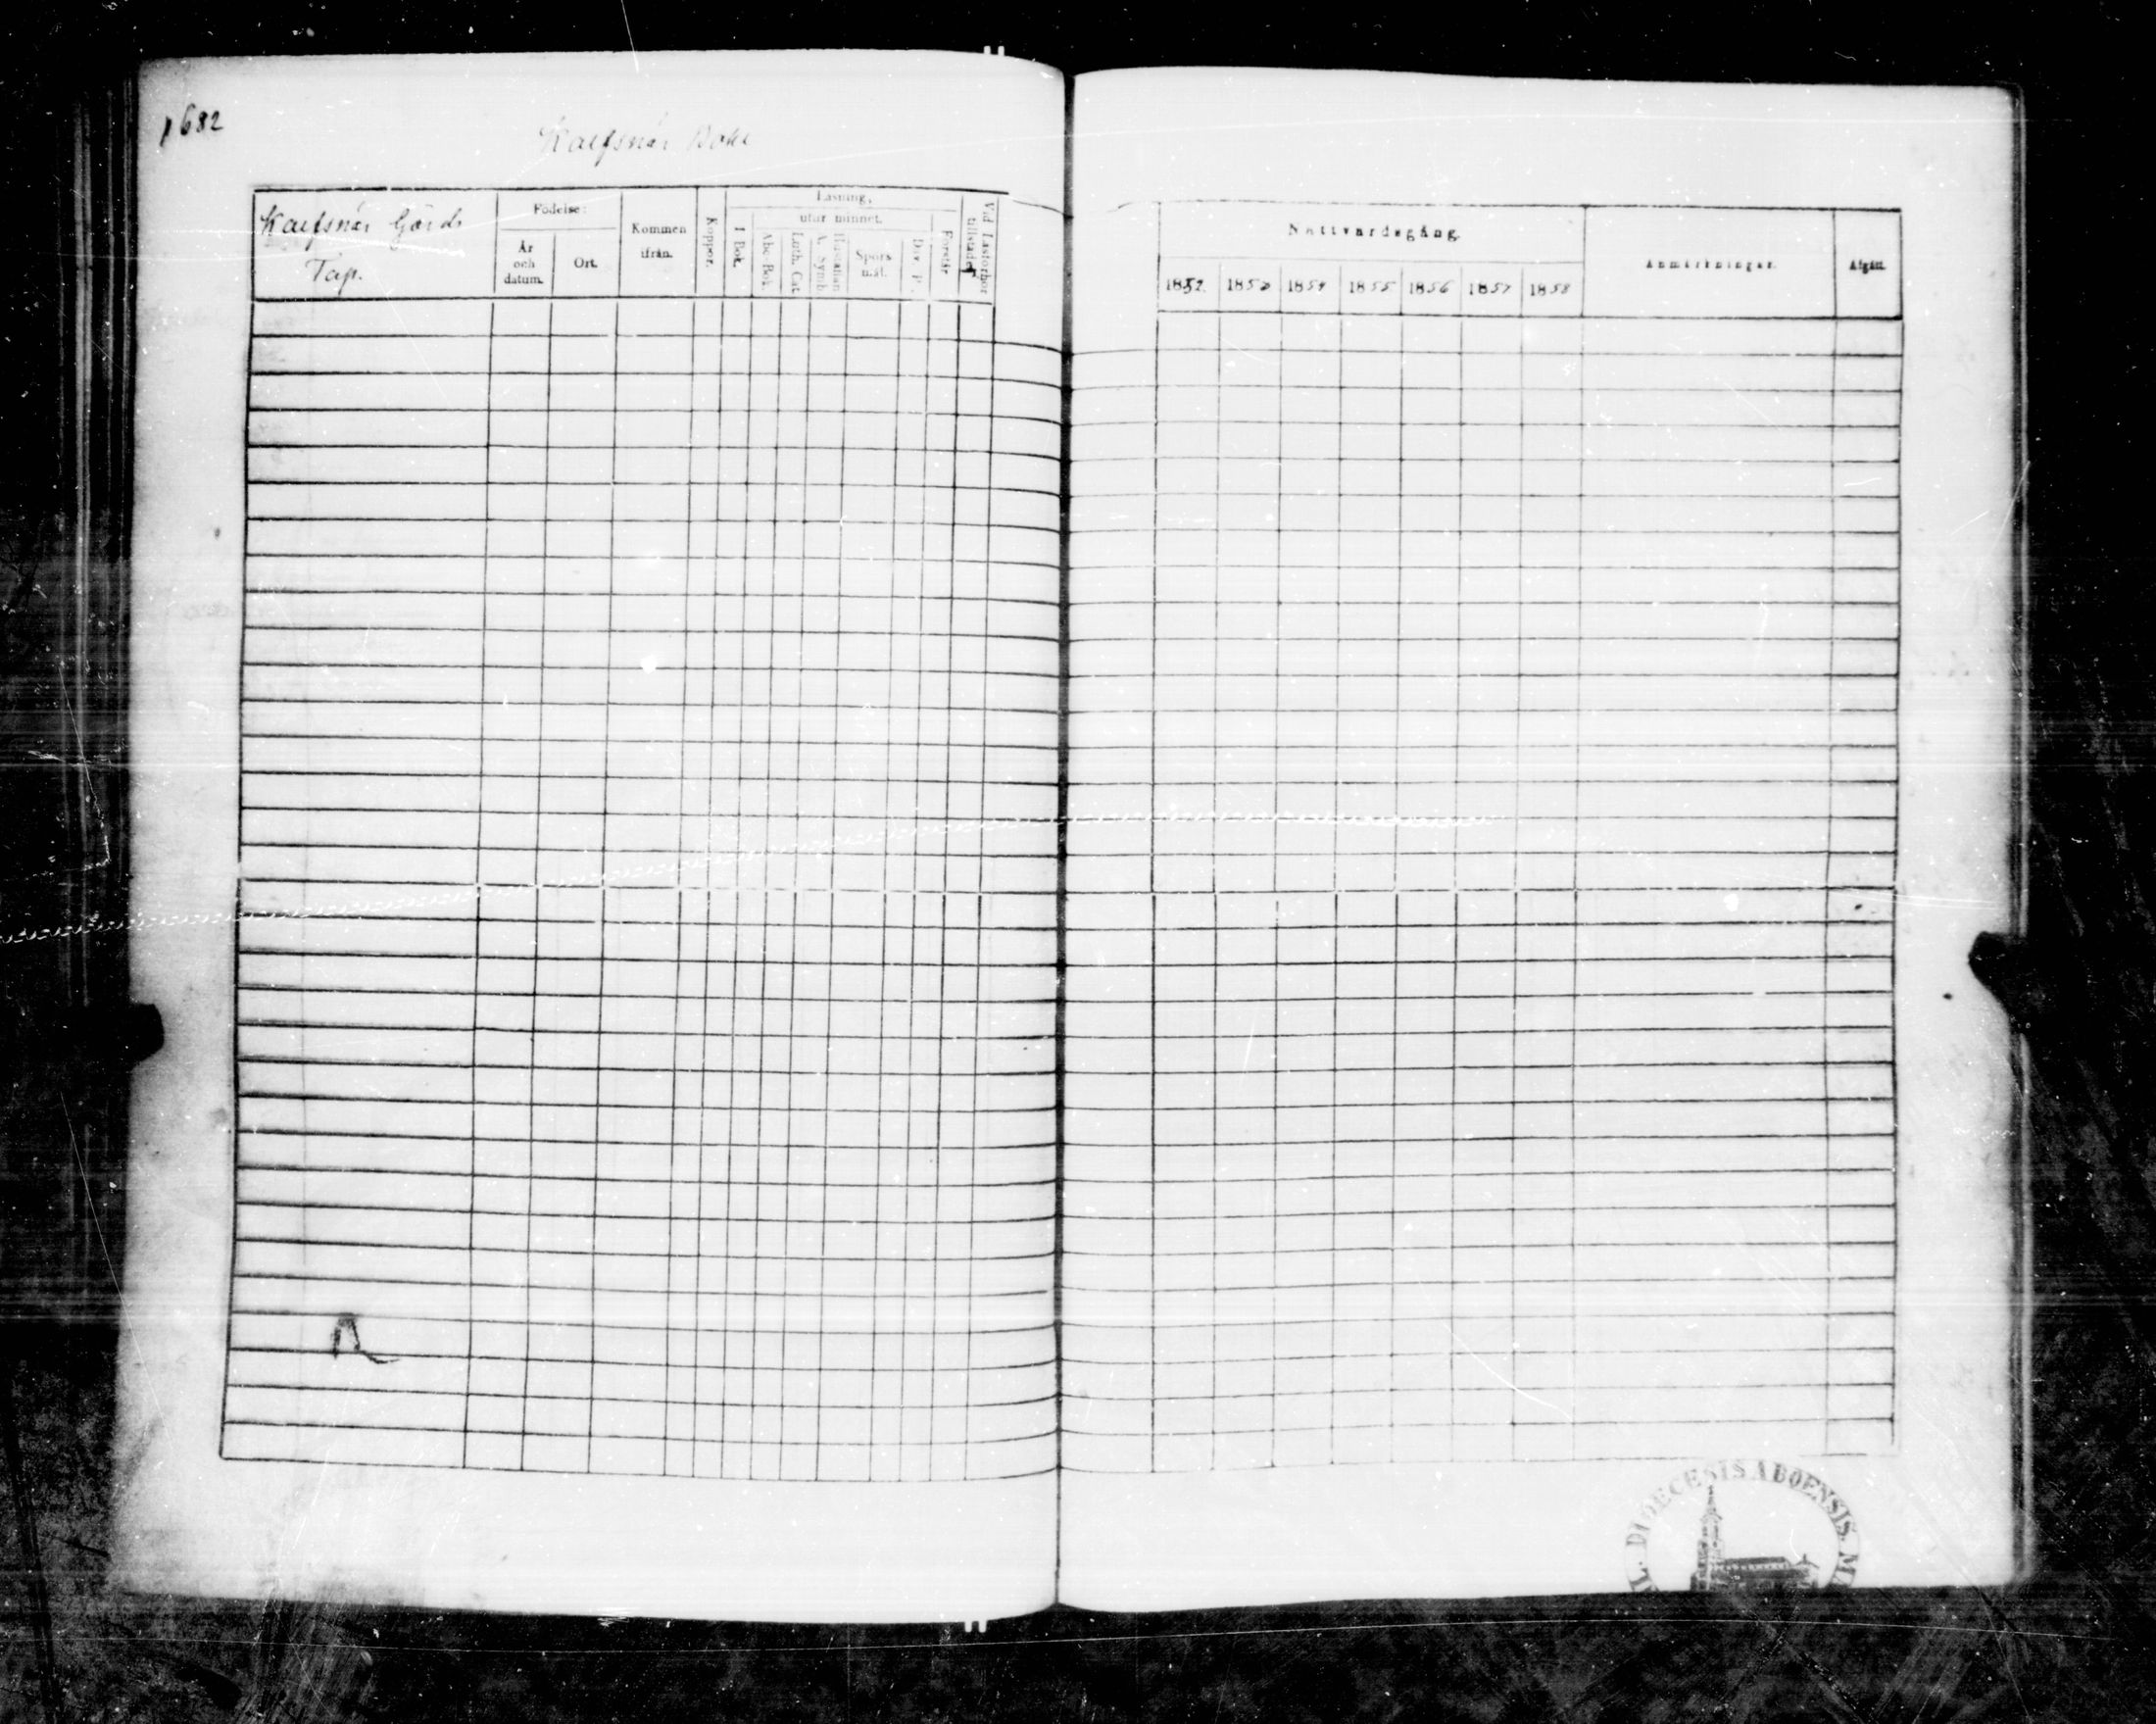 1682
Kalfsnäs Bohl
Kalfsnäs Gårds
Tap.
Födelse:
År
och
datum.
Ort.
Kommen
ifrån.
Koppor.
Läsning,
utur minnet.
I Bok.
Abc-Bok.
Luth. Cat.
A. Symb.
Hustaflan
Spörs
mål.
Dav. P.
Förstår
Vid Läsförhör
tillstädes
Nattvardsgång.
1852.
1853
1854
1855
1856
1857
1858
Anmärkningar.
Afgått.
DIOECESIS ABOENSIS